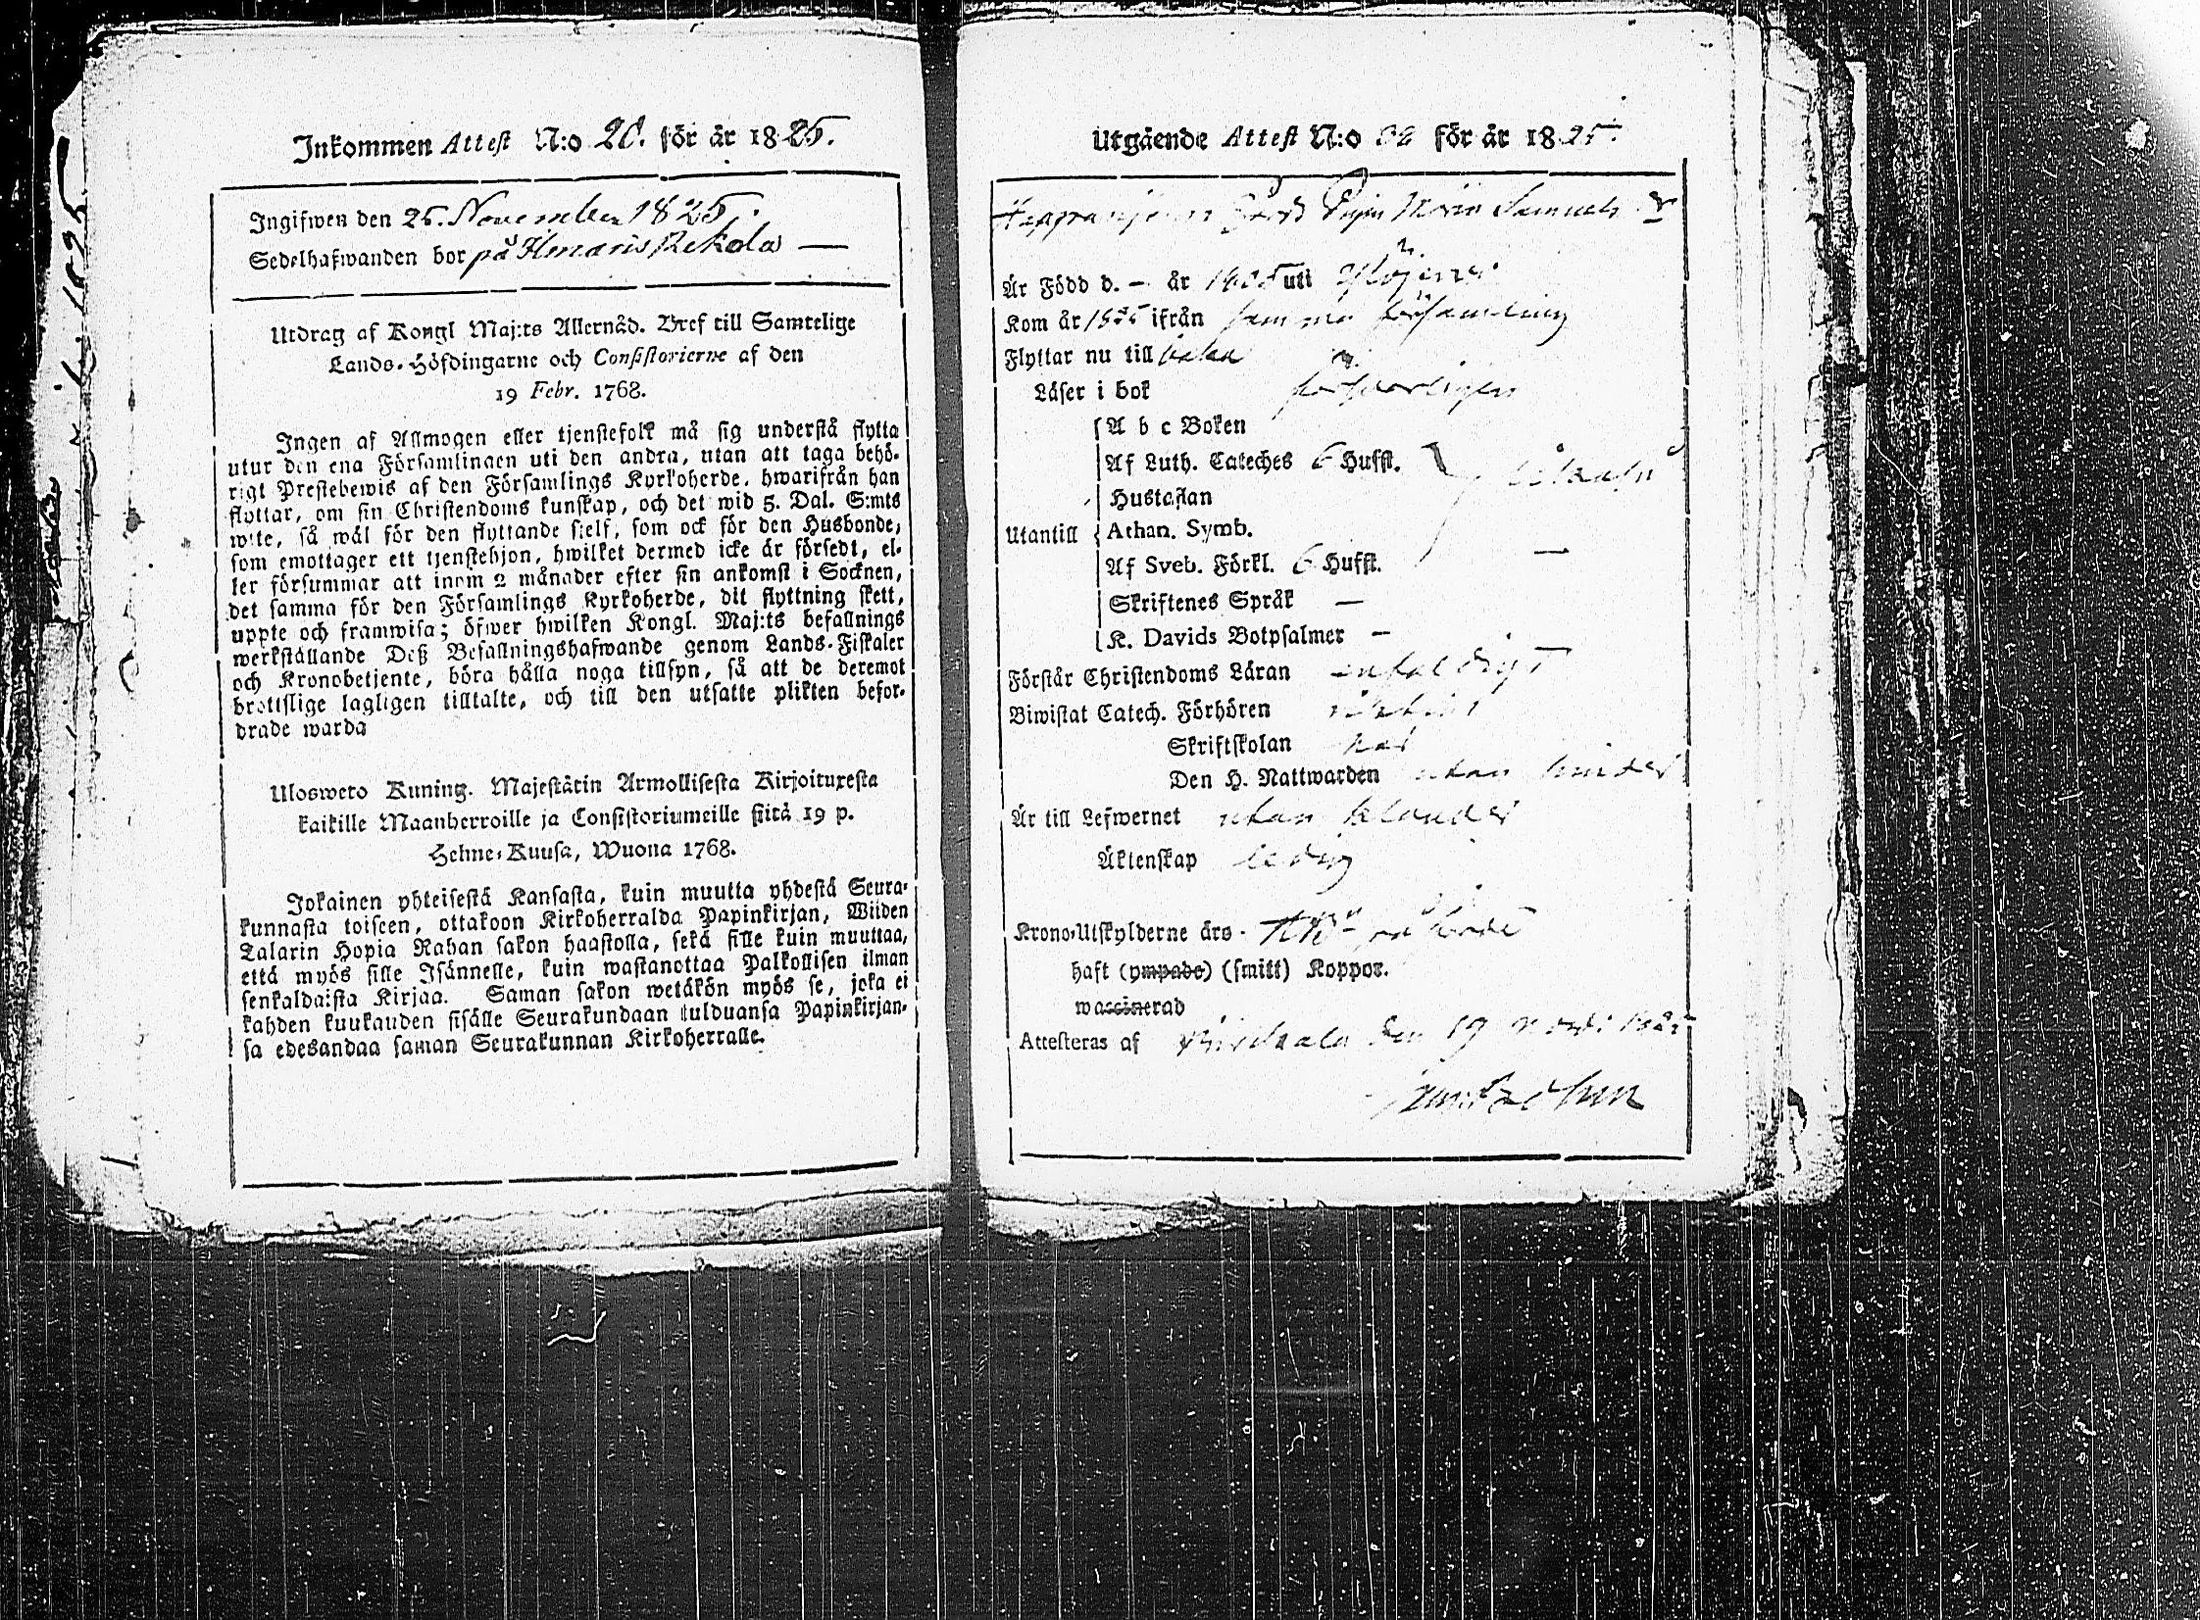 Inkommen Attest N:o 20. för år 1825.
Ingifwen den 25. November 1825.
Sedelhafwanden bor på Ilmaris Rekola —
Utdrag af Kongl Maj:ts Allernåd. Bref till Samtelige
Lands-Höfdingarne och Consistorierne af den
19 Febr. 1768.
Ingen af Allmogen eller tjenstefolk må sig understå flytta
utur den ena Församlingen uti den andra, utan att taga behö-
rigt Prestebewis af den Församlings Kyrkoherde, hwarifrån han
flyttar, om sin Christendoms kunskap, och det wid 5. Dal. S:mts
wite, så wäl för den flyttande sielf, som ock för den Husbonde,
som emottager ett tjenstehjon, hwilket dermed icke är försedt, el-
ler försummar att inom 2 månader efter sin ankomst i Socknen,
det samma för den Församlings Kyrkoherde, dit flyttning skett,
uppte och framwisa; öfwer hwilken Kongl. Maj:ts befallnings
werkställande Deß Befallningshafwande genom Lands-Fiskaler
och Kronobetjente, böra hålla noga tillsyn, så att de deremot
brottslige lagligen tilltalte, och till den utsatte plikten befor-
drade warda
Ulosweto Kuning. Majestätin Armollisesta Kirjoituxesta
kaikille Maanherroille ja Consistoriumeille siitä 19 p.
Helme-Kuusa, Wuona 1768.
Jokainen yhteisestä Kansasta, kuin muutta yhdestä Seura-
kunnasta toiseen, ottakoon Kirkoherralda Papinkirjan, Wiiden
Talarin Hopia Rahan sakon haastolla, sekä sille kuin muuttaa,
että myös sille Isännelle, kuin wastanottaa Palkollisen ilman
senkaldaista Kirjaa. Saman sakon wetäkön myös se, joka ei
kahden kuukauden sisälle Seurakundaan tulduansa Papinkirjan-
sa edesandaa saman Seurakunnan Kirkoherralle.
Utgående Attest N:o 32 för år 1825.
Pigan Maria Samuels dr
Är Född d. — år 1805 uti
Kom år 1825 ifrån samma församling
Flyttar nu till
Läser i bok försvarligen
A b c Boken
Af Luth. Cateches 6 Hufst.
Hustaflan
Utantill Athan. Symb.
Af Sveb. Förkl. 6 Hufst. —
Skriftenes Språk —
K. Davids Botpsalmer —
Förstår Christendoms Läran enfaldigt
Biwistat Catech. Förhören
Skriftskolan
Den H. Nattwarden utan hinder
Är till Lefwernet utan klander
Äktenskap ledig
Krono-Utskylderne äro
haft (ympade) (smitt) Koppor.
waccinerad
Attesteras af den 19 1825